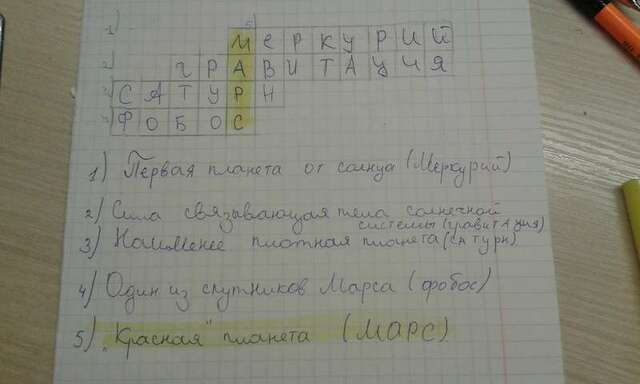 5
1) МЕРКУРИЙ
2) ГРАВИТАЦИЯ
3) САТУРН
4) ФОБОС
1) Первая планета от солнца (Меркурий)
2) Сила связывающая тела солнечной
системы (гравитация)
3) Наименее плотная планета (сатурн)
4) Один из спутников Марса (фобос)
5) „Красная" планета (МАРС)